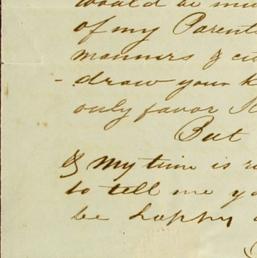 would be
of my Parents
manners &
- draw your
only favor
But
& My time is
to tell me
be happy